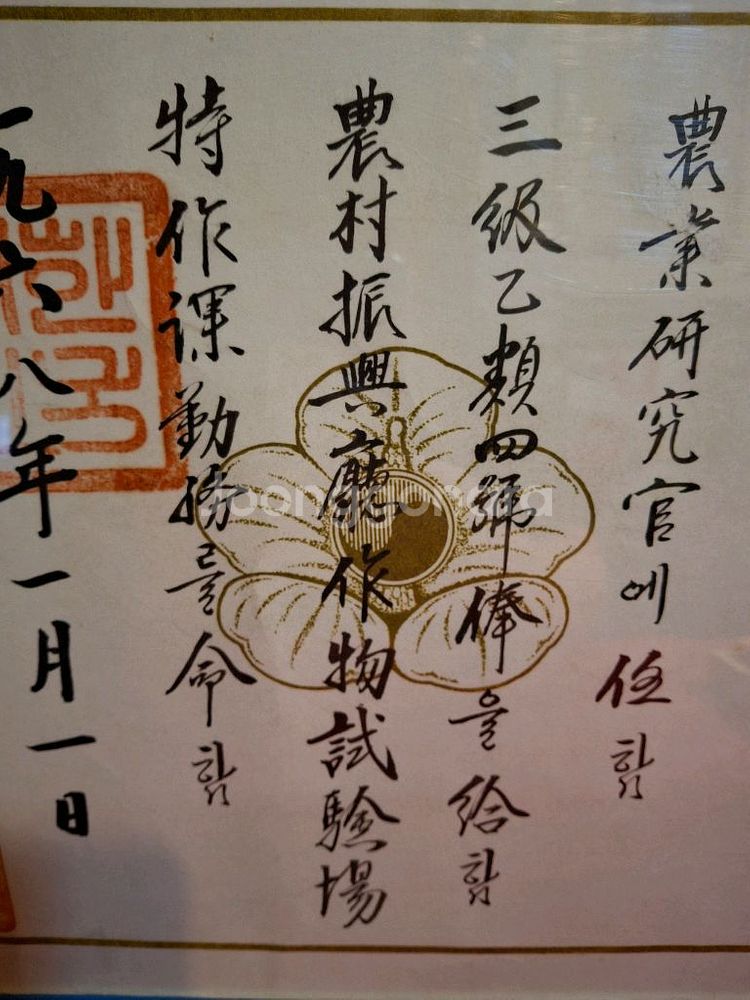 農業硏究官에 任함
三級乙類四號俸을 給함
農村振興廳作物試驗場
特作課勤務를 命함
一九六八年一月一日